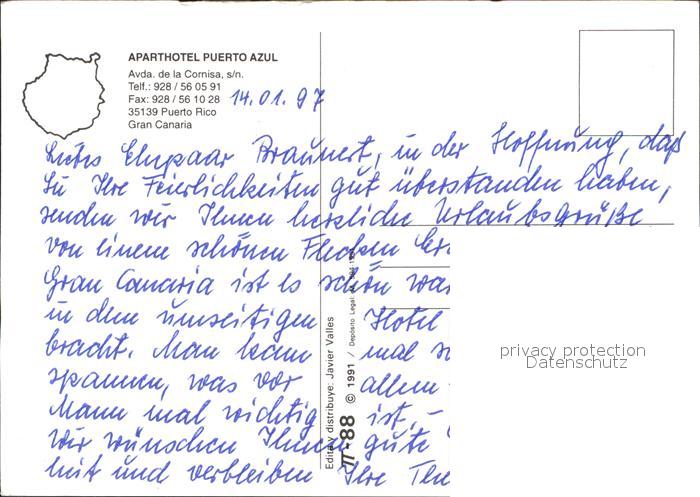 APARTHOTEL PUERTO AZUL
Avda. de la Cornisa, s/n.
Telf.: 928 / 56 05 91
Fax: 928 / 56 10 28
35139 Puerto Rico
Gran Canaria
14.01.97
Liebes Ehepaar Braunert, in der Hoffnung, daß
Sie Ihre Feierlichkeiten gut überstanden haben,
senden wir Ihnen herzliche Urlaubsgrüße
von einem schönen Flecken
Gran Canaria ist es schön
in dem umseitigen Hotel
bracht. Man kann mal
spannen, was vor allem
Mann mal wichtig ist, -
Wir wünschen Ihnen gute
heit und verbleiben Ihre
Edita y distribuye: Javier Valles
π-88 © 1991 / Depósito Legal:
privacy protection
Datenschutz